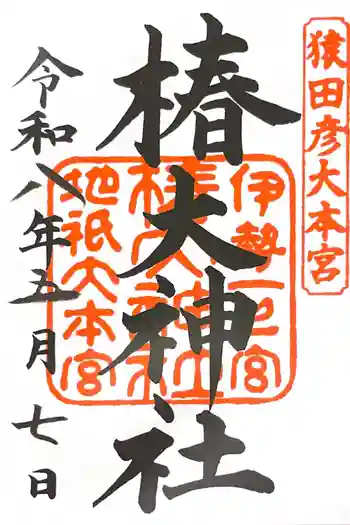 猿田彦大本宮
椿大神社
伊勢一之宮
椿大神社
地祇大本宮
令和八年五月七日